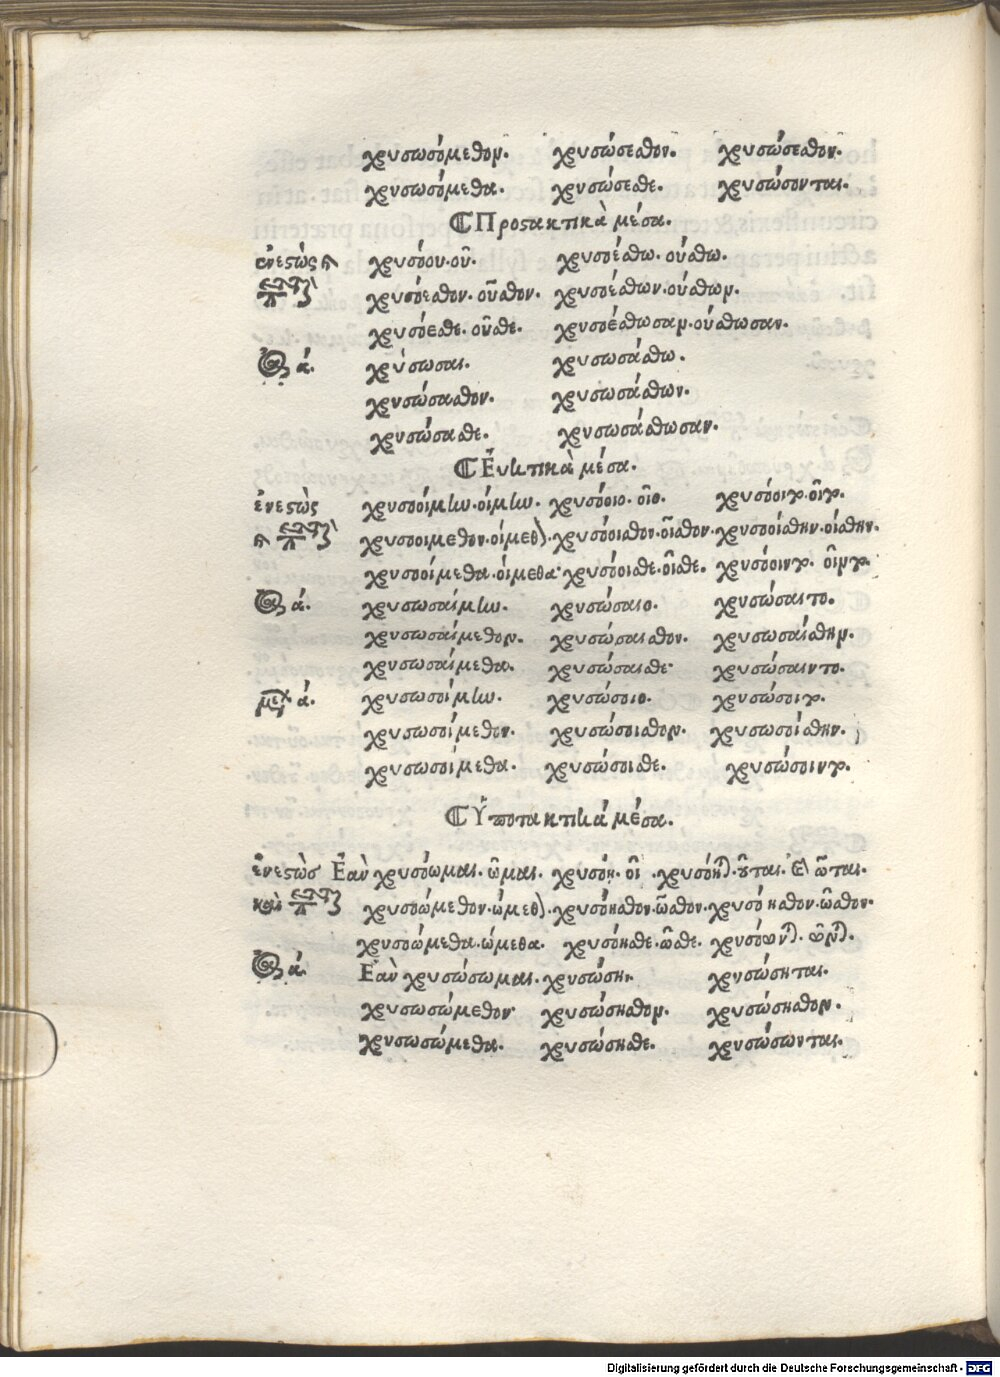 χρυσωσόμεθον. χρυσώσεσθον. χρυσώσεσθον.
χρυσωσόμεθα. χρυσώσεσθε. χρυσώσονται.
Προστακτικὰ μέσα.
ἐνεστὼς χρυσόου.οῦ. χρυσοέσθω.ούσθω.
χρυσόεσθον.οῦσθον. χρυσοέσθων.ούσθων.
χρυσόεσθε.οῦσθε. χρυσοέσθωσαν.ούσθωσαν.
ά. χρύσωσαι. χρυσωσάσθω.
χρυσώσασθον. χρυσωσάσθων.
χρυσώσασθε. χρυσωσάσθωσαν.
Εὐκτικὰ μέσα.
ἐνεστὼς χρυσοοίμην.οίμην. χρυσόοιο.οῖο. χρυσόοιτο.οῖτο.
χρυσοοιμεθον.οίμεθον.χρυσόοισθον.οῖσθον.χρυσοοίσθην.οίσθην.
χρυσοοίμεθα.οίμεθα.χρυσόοισθε.οῖσθε. χρυσόοιντο. οῖντο.
ά. χρυσωσαίμην. χρυσώσαιο. χρυσώσαιτο.
χρυσωσαίμεθον. χρυσώσαισθον. χρυσωσαίσθην.
χρυσωσαίμεθα. χρυσώσαισθε. χρυσώσαιντο.
ά. χρυσωσοίμην. χρυσώσοιο. χρυσώσοιτο.
χρυσωσοίμεθον. χρυσώσοισθον. χρυσωσοίσθην.
χρυσωσοίμεθα. χρυσώσοισθε. χρυσώσοιντο.
Ὑποτακτικά μέσα.
ἐνεστὼς Ἐὰν χρυσόωμαι.ῶμαι. χρυσόῃ.οῖ.
καὶ χρυσοώμεθον.ώμεθον.χρυσόησθον.ῶσθον.χρυσόησθον.ῶσθον.
χρυσοώμεθα.ώμεθα. χρυσόησθε.ῶσθε. χρυσόωνται. ῶνται.
ά. Ἐὰν χρυσώσωμαι.χρυσώσῃ. χρυσώσηται.
χρυσωσώμεθον. χρυσώσησθον. χρυσώσησθον.
χρυσωσώμεθα. χρυσώσησθε. χρυσώσωνται.
Digitalisierung gefördert durch die Deutsche Forschungsgemeinschaft - DFG